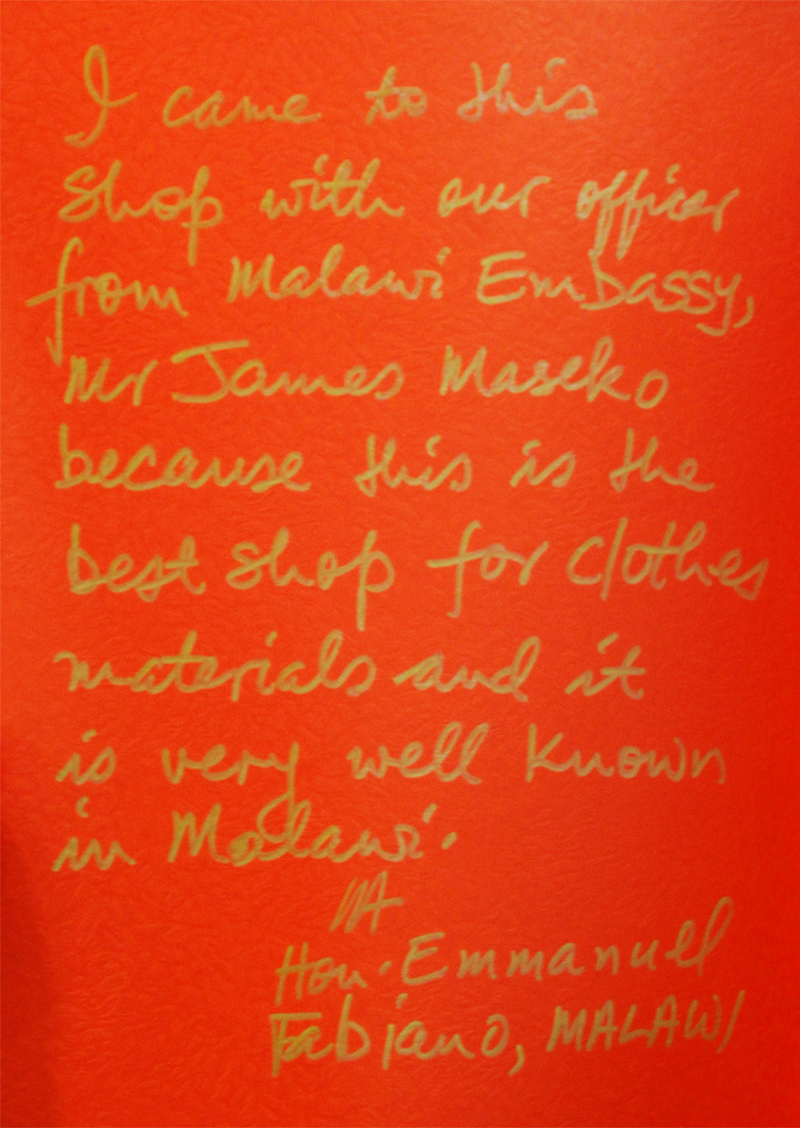 I came to this
shop with our officer
from Malawi Embassy,
Mr James Maseko
because this is the
best shop for clothes
materials and it
is very well known
in Malawi.
Hon. Emmanuel
Fabiano, MALAWI